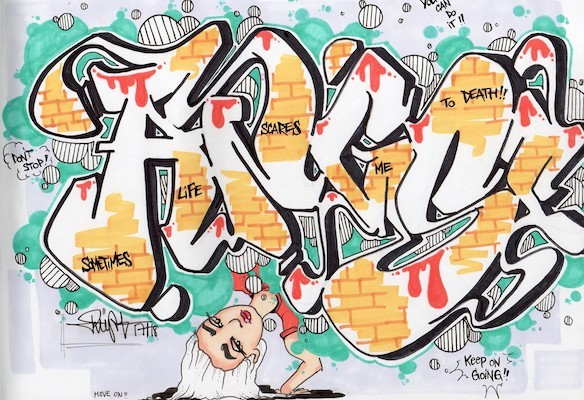 YOU
CAN
DO
IT !!
DON'T
STOP!
SOMETIMES
LIFE
SCARES
ME
TO DEATH!!
KEEP ON
GOING!!
MOVE ON!!